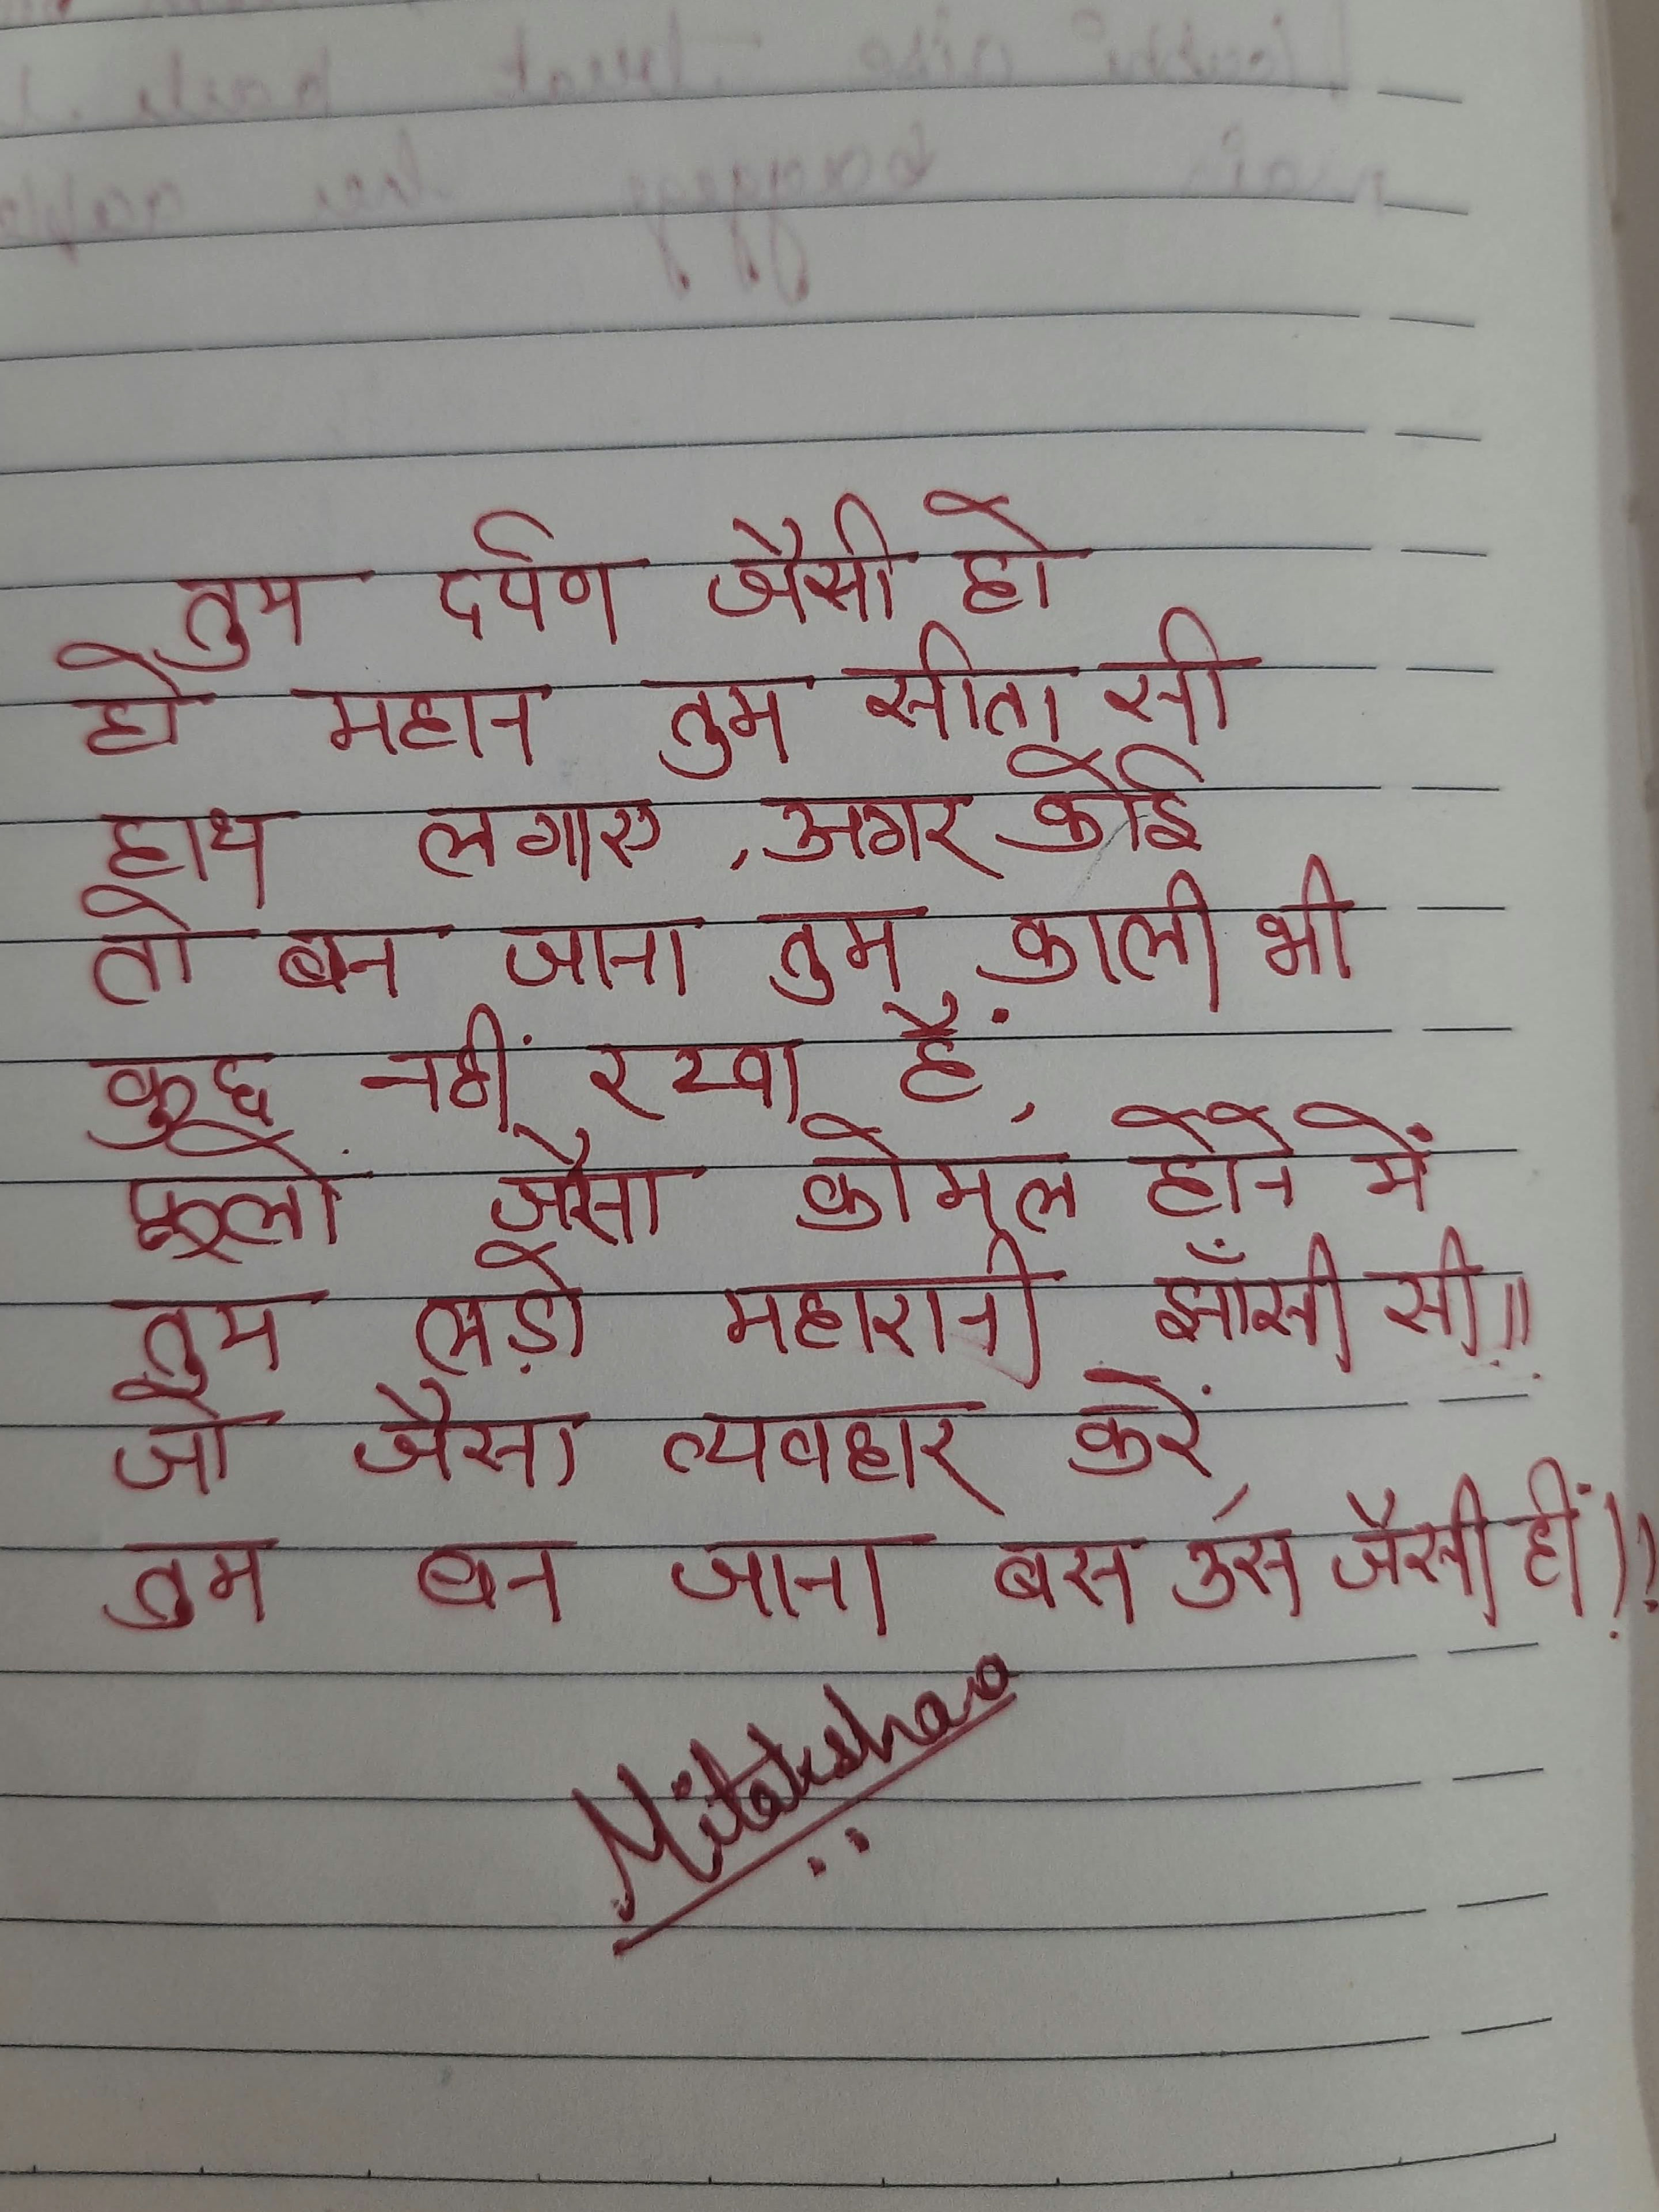 तुम दर्पण जैसी हो
हो महान तुम सीता सी
हाथ लगाए, अगर कोई
तो बन जाना तुम काली भी
कुछ नहीं रखा हैं,
फूलों जैसा कोमल होने में
तुम लड़ो महारानी झाँसी सी॥
जो जैसा व्यवहार करें
तुम बन जाना बस उस जैसी हीं!!
Mitakshao